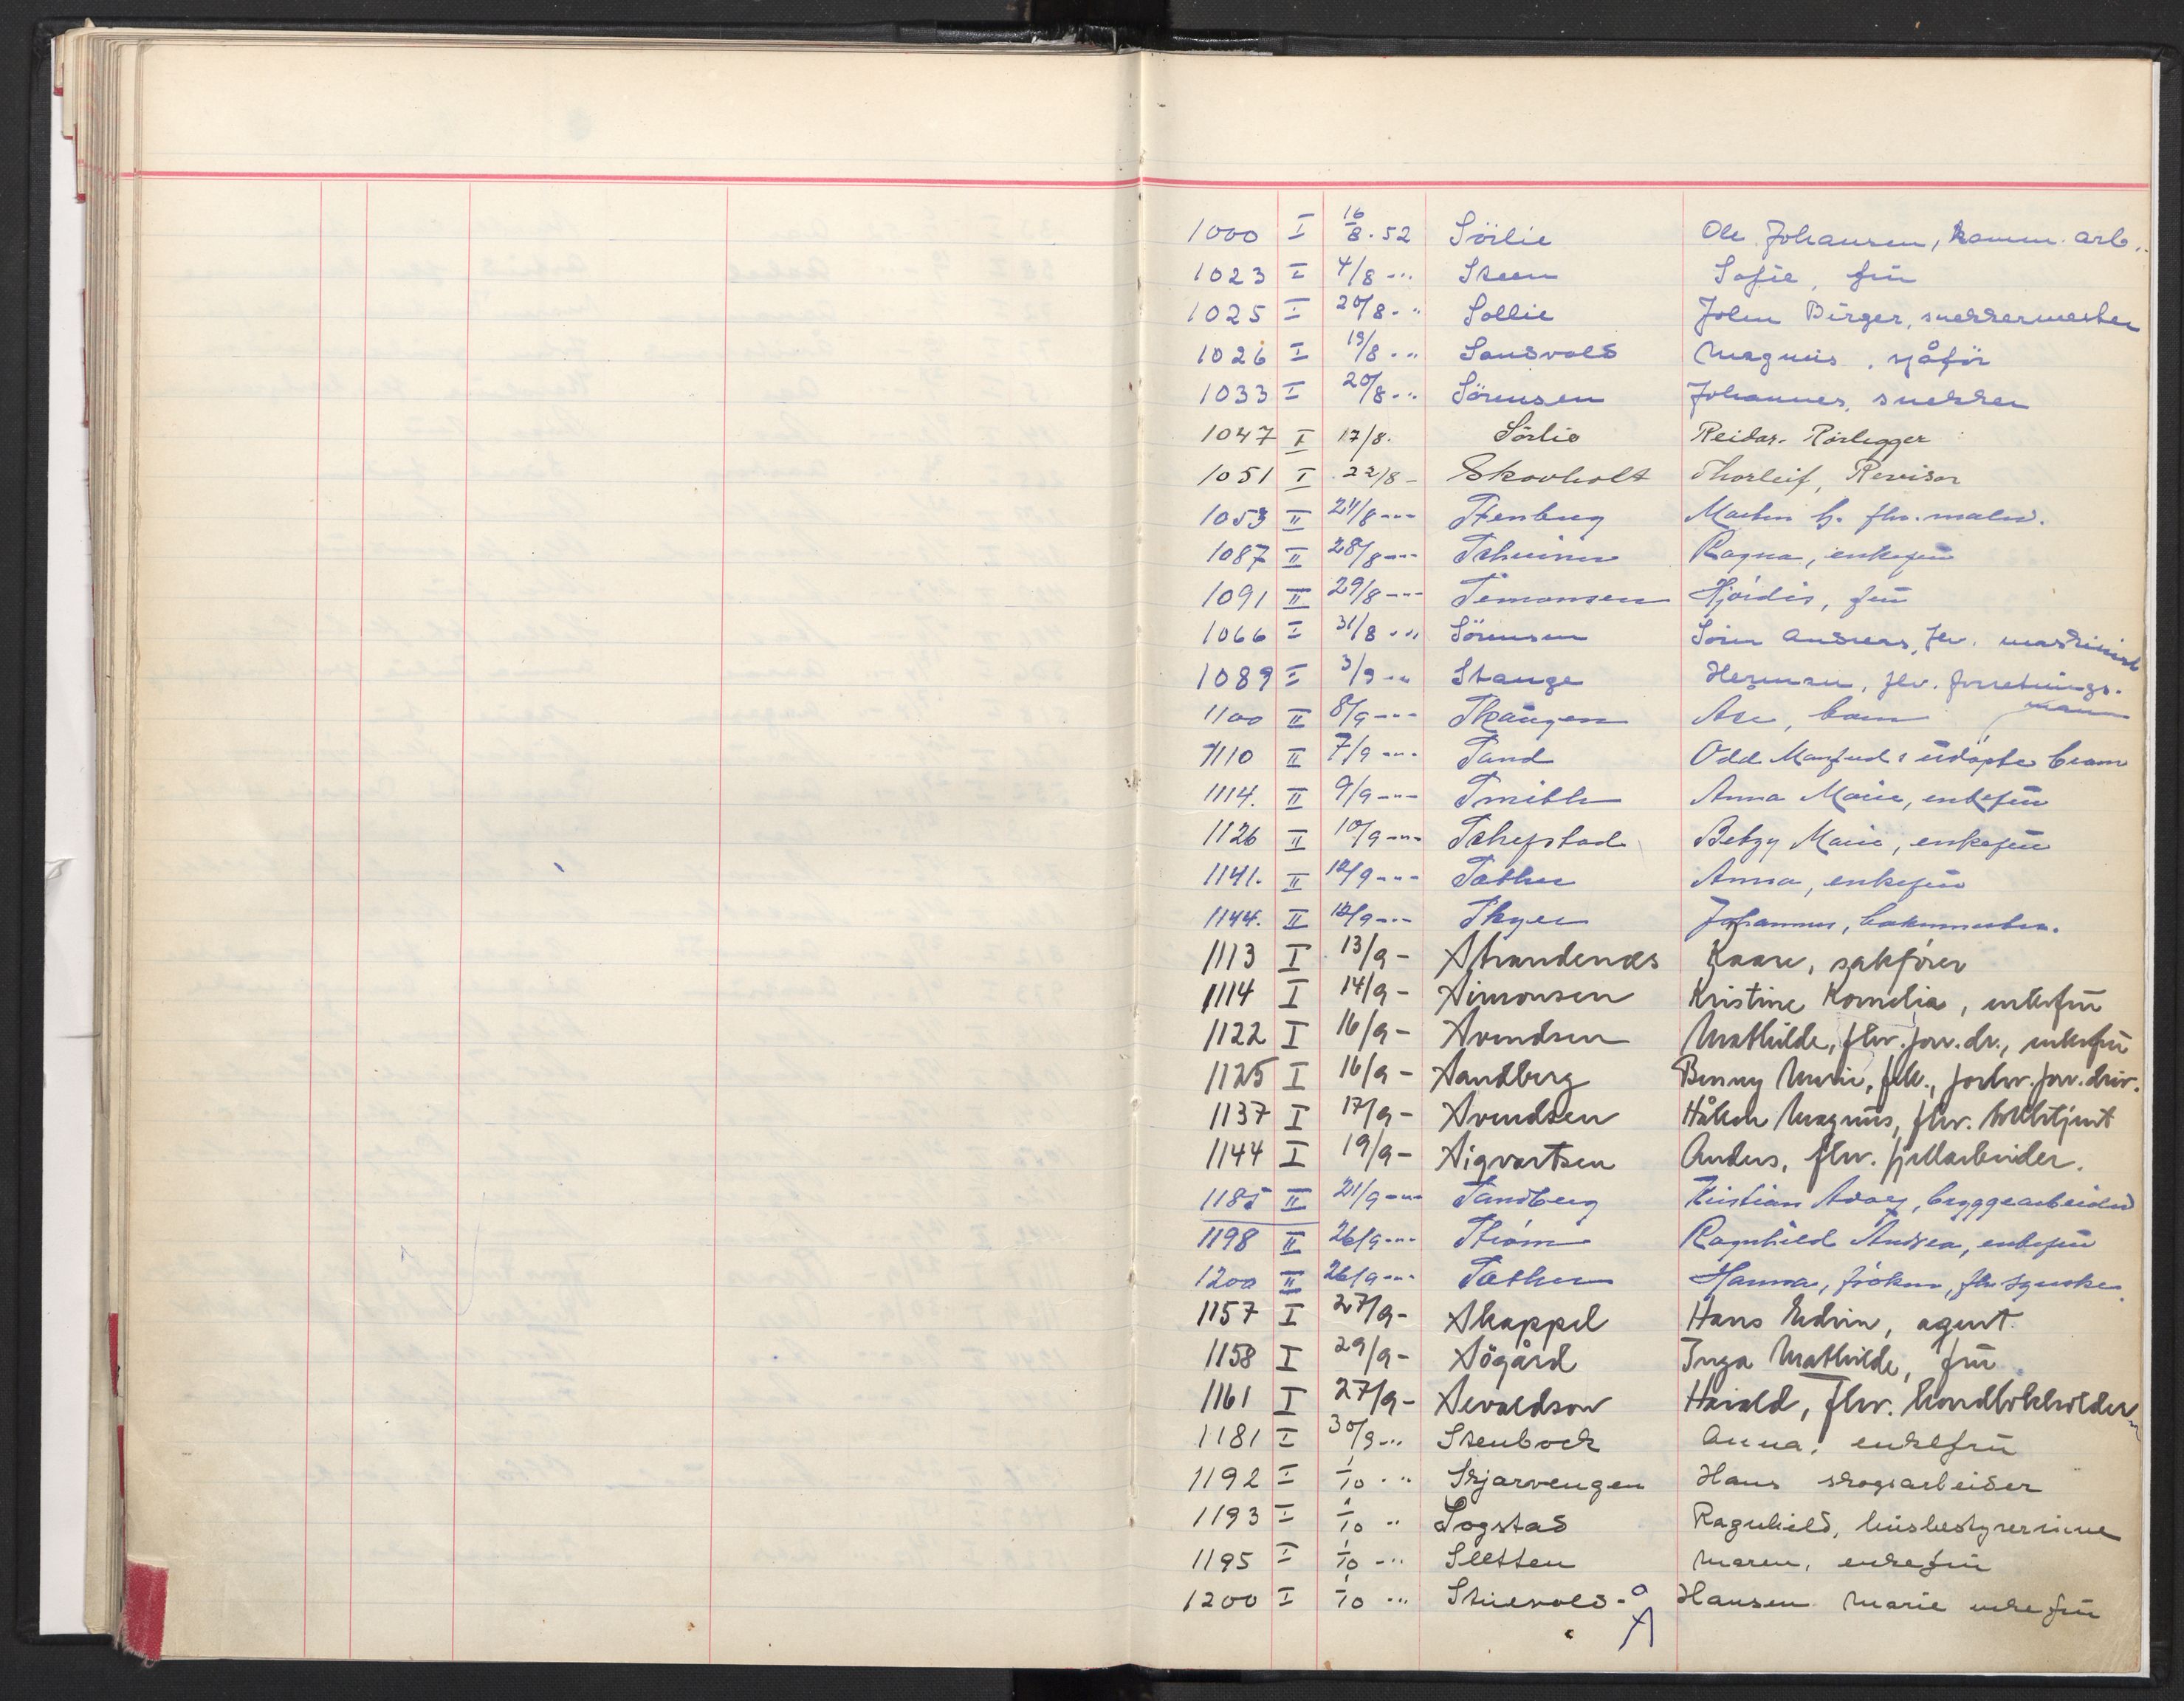 1000 I 16/8.52 Sörlie Ole Johansen, komm. arb.
1023 I 4/8 -"- Steen Sofie, frü
1025 I 20/8 -"- Sollie John Birger, snekkermester
1026 I 19/8 -"- Sandvold Magnus, sjåför
1033 I 20/8 -"- Sörensen Johannes, snekker
1047 I 17/8. Sörlie Reidar. Rörlegger
1051 I 22/8 - Skovholt Thorleif, Revisor
1053 II 21/8 -"- Stenberg Martin fhv. maler.
1087 II 28/8 -"- Ragna, enkefrü
1091 II 29/8 -"- Simonsen Hjördis, frü
1066 I 31/8 -"- Sörensen Sören Andreas, fhv. maskinist
1089 I 3/9 -"- Stange Herman, fhv. forretnings-
mann
1100 II 8/9 -"- Skaugen barn
1110 II 7/9 -"- Sand Odd Manfred's üdöpte barn
1114. II 9/9 -"- Smith Anna Marie, enkefrü
1126 II 10/9 -"- Schefstad Betzy Marie, enkefrü
1141. II 12/9 -"- Sæther Anna, enkefrü
1144. II 12/9 -"- Johannes, bakermester.
1113 I 13/9 - Strandenæs Kaare, sakförer
1114 I 14/9 - Simonsen Kristine Kornelia, enkefrü
1122 I 16/9 - Svendsen Mathilde, fhv. forr.dr., enkefrü
1125 I 16/9 - Sandberg Benny Marie, frk., forhv. forr.driv.
1137 I 17/9 - Svendsen Håkon Magnüs, fhv.
1144 I 19/9 - Sigvartsen Anders, fhv. fjellarbeider.
1185 II 21/9 -"- Sandberg Kristian Adolf, bryggearbeider
1198 II 26/9 -"- Ström Ragnhild Andrea, enkefrü
1200 II 26/9 -"- Sæther Hanna, fröken, fhv syerske
1157 I 27/9 - Skappel Hans Edvin, agent.
1158 I 29/9 - Sögård Inga Mathilde, frü
1161 I 27/9 - Sevaldson Harald, fhv.
1181 I 30/9 -"- Stenbock Anna, enkefrü
1192 I 1/10 -"- Skjarvengen Hans skogsarbeider
1193 I 1/10 -"- Sogstad Ragnhild, hüsbestyrerinne
1195 I 1/10 -"- Sletten Maren, enkefrü
1200 I 1/10 -"- Hansen Marie enkefrü